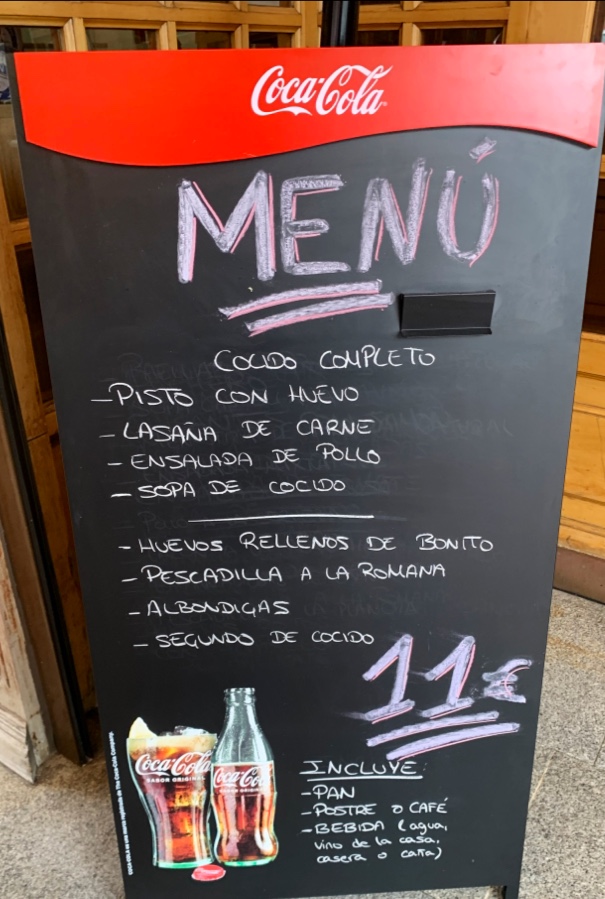 Coca-Cola
MENÚ
COCIDO COMPLETO
- PISTO CON HUEVO
- LASAÑA DE CARNE
- ENSALADA DE POLLO
- SOPA DE COCIDO
- HUEVOS RELLENOS DE BONITO
- PESCADILLA A LA ROMANA
- ALBONDIGAS
- SEGUNDO DE COCIDO
11€
INCLUYE:
- PAN
- POSTRE O CAFÉ
- BEBIDA (agua,
vino de la casa,
casera o caña)
Coca-Cola
SABOR ORIGINAL
Coca-Cola
SABOR ORIGINAL
COCA-COLA es una marca registrada de The Coca-Cola Company.